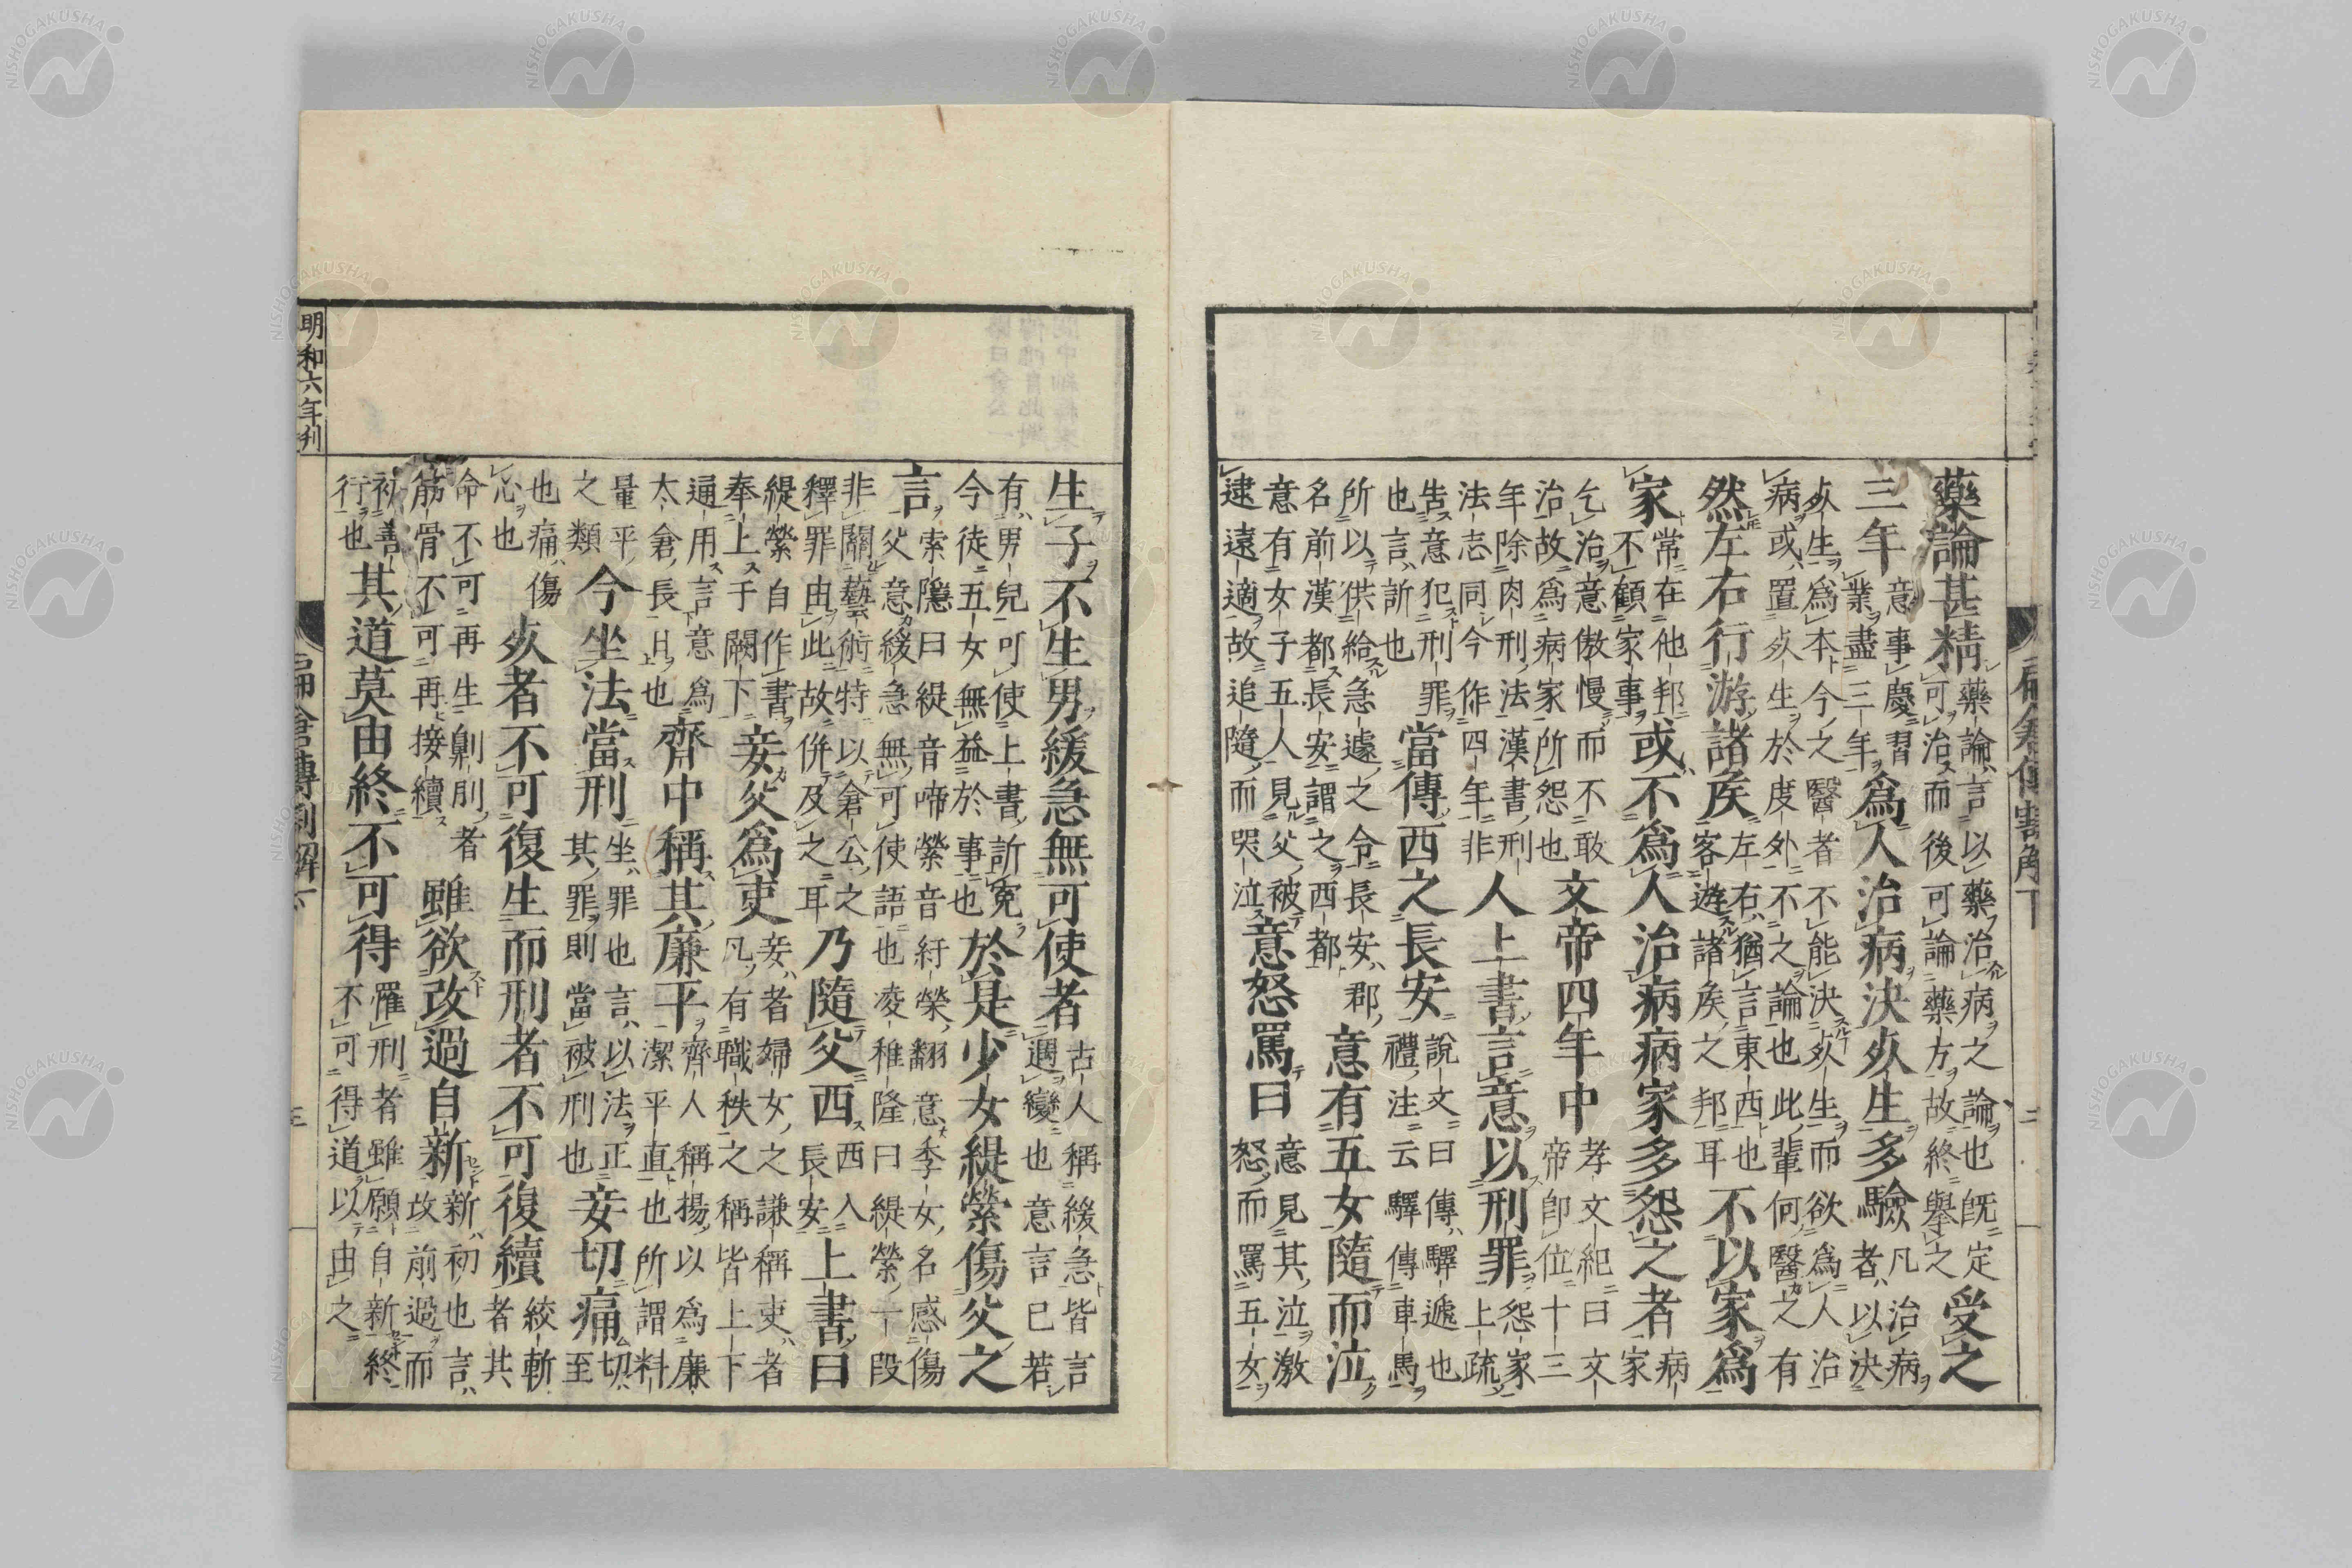 藥論甚精
藥論言以藥治病之論也既定
可治而後可論藥方故終舉之
受之
三年
意事慶習
業盡三年
爲人治病決死生多驗
凡治病
者以決
死生爲本今之醫者不能決死生而欲爲人治
病或置死生於度外不之論也此輩何醫之有
然左右行游諸矦
左右猶言東西也
客遊諸矦之邦耳
不以家爲
家
常在他邦
不顧家事
或不爲人治病病家多怨之者
病
家
乞治意傲慢而不敢
治故爲病家所怨也
文帝四年中
孝文紀曰文
帝即位十三
年除肉刑法漢書刑
法志同今作四年非
人上書言意以刑罪
怨家
上疏
告意犯刑罪
也言訴也
當傳西之長安
說文曰傳驛遞也
禮注云驛傳車馬
所以供給急遽之令長安郡
名前漢都長安謂之西都
意有五女隨而泣
意有女子五人見父被
逮遠適故追隨而哭泣
意怒罵曰
意見其泣激
怒而罵五女
生子不生男緩急無可使者
古人稱緩急皆言
遇變也意言已若
有男兒可使上書訴冤
今徒五女無益於事也
於是少女緹縈傷父之
言
索隱曰緹音啼縈音紆縈翻意季女名感傷
父意緩急無可使語也凌稚隆曰緹縈一段
非關藝術特以倉公之
釋罪由此故併及之耳
乃隨父西
西入
長安
上書曰
緹縈自作書
奉上于闕下
妾父爲吏
妾者婦女之謙稱吏者
凡有職秩之稱皆上下
通用言意爲
太倉長也
齊中稱其廉平
齊人稱揚以爲廉
潔平直也所謂料
量平
之類
今坐法當刑
坐罪也言以法正
其罪則當被刑也
妾切痛
切
至
也痛傷
心也
死者不可復生而刑者不可復續
絞斬
者其
命不可再生劓刖者
筋骨不可再接續
雖欲改過自新
新初也言
改前過而
初善
行也
其道莫由終不可得
罹刑者雖願自新終
不可得道以由之
明和六年刊
扁倉傳割解下
三